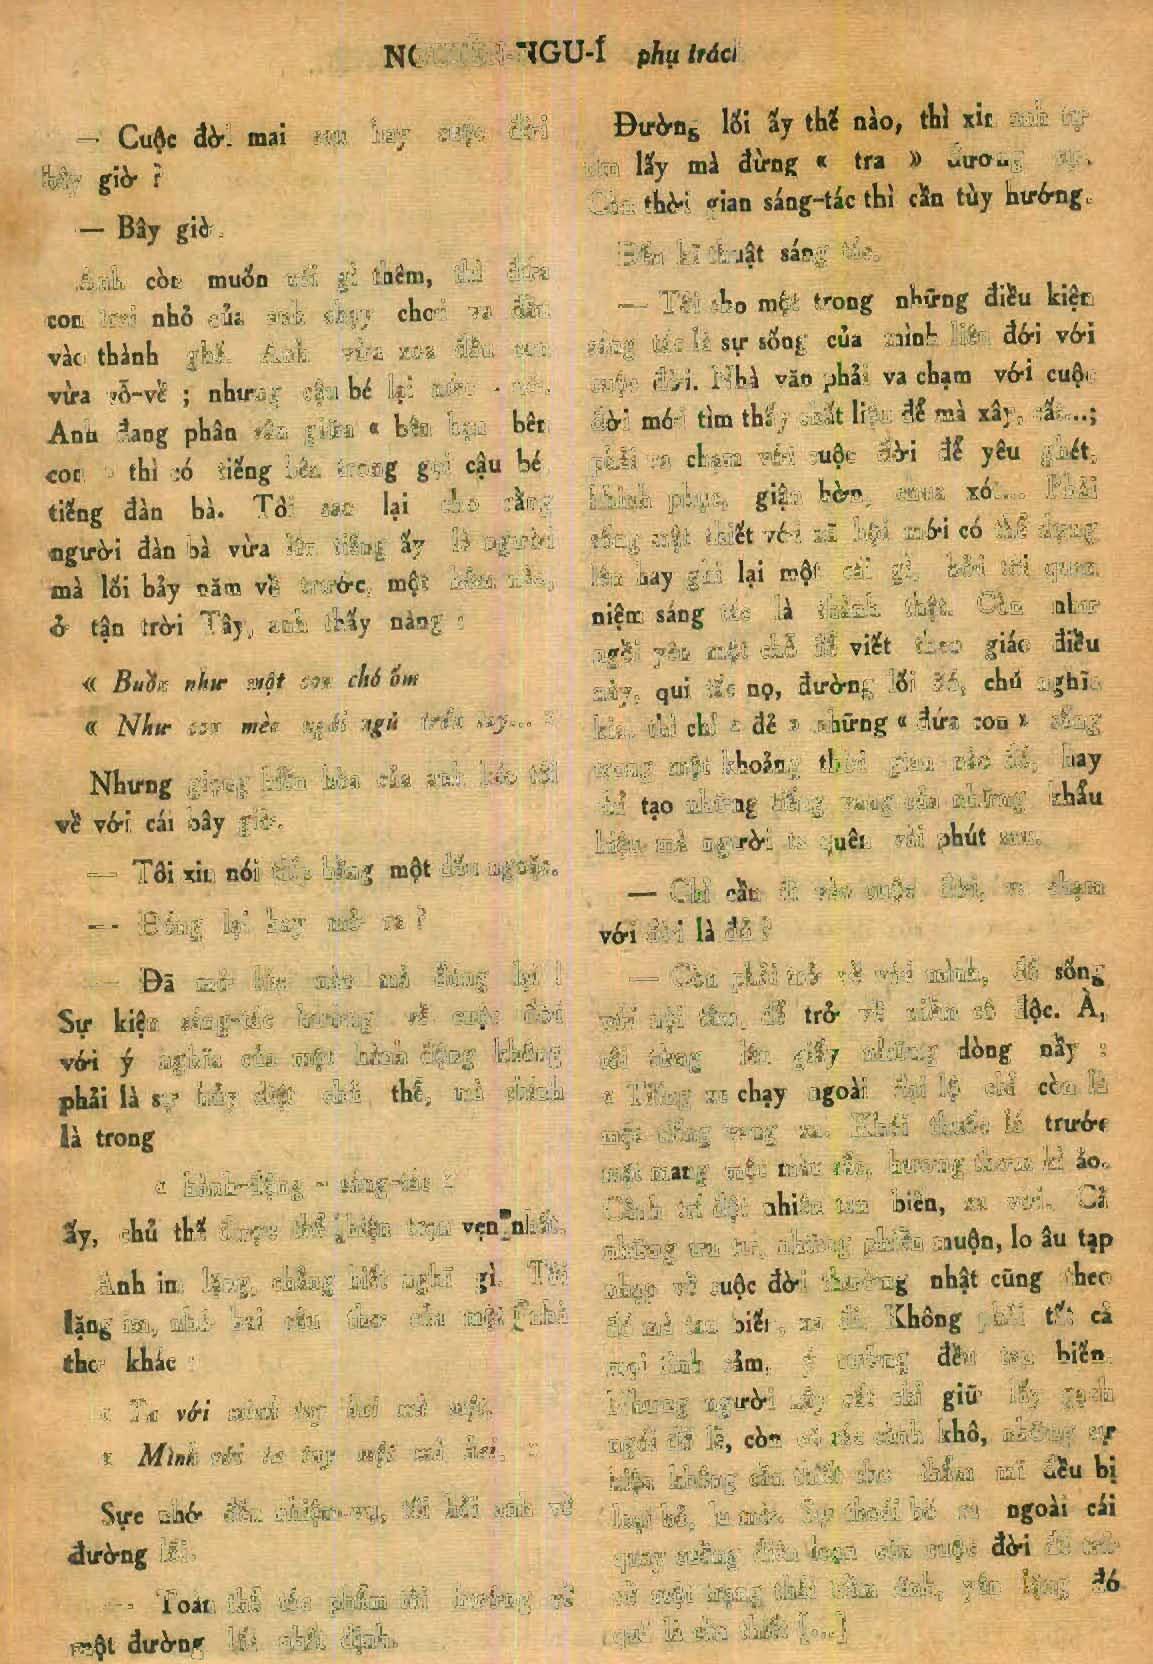 NGUIỄN-NGU-Í phụ trách
— Cuộc đời mai sau hay cuộc đời
bây giờ ?
— Bây giờ.
Anh còn muốn nói gì thêm, thì đứa
con trai nhỏ của anh chạy chơi va đầu
vào thành ghế. Anh vừa xoa đầu con
vừa vỗ-về ; nhưng cậu bé lại
Anh đang phân vân giữa « bên bạn bên
con » thì có tiếng bên trong gọi cậu bé,
tiếng đàn bà. Tôi sao lại cho rằng
người đàn bà vừa lên tiếng ấy là người
mà lối bảy năm về trước, một hôm nào,
ở tận trời Tây, anh thấy nàng :
« Buồn như một con chó ốm
« Như con mèo ngái ngủ trên tay... »
Nhưng giọng hiền hòa của anh kéo tôi
về với cái bây giờ.
— Tôi xin nói tiếp bằng một dấu ngoặc.
— Đóng lại hay mở ra ?
— Đã mở lúc nào mà đóng lại !
Sự kiện sáng-tác hướng về cuộc đời
với ý nghĩa của một hành động không
phải là sự hủy diệt chủ thể, mà chính
là trong
« hành-động - sáng-tác »
ấy, chủ thể được thể hiện trọn vẹn nhất.
Anh im lặng, chẳng biết nghĩ gì. Tôi
lặng im, nhớ hai câu thơ của một nhà
thơ khác :
« Ta với mình tuy hai mà một,
« Mình với ta tuy một mà hai. »
Sực nhớ đến nhiệm-vụ, tôi hỏi anh về
đường lối.
— Toàn thể tác phẩm tôi hướng về
một đường lối nhất định.
Đường lối ấy thế nào, thì xin anh tự
tìm lấy mà đừng « tra » đương sự.
Còn thời gian sáng-tác thì cần tùy hướng.
Đến kĩ thuật sáng tác.
— Tôi cho một trong những điều kiện
sáng tác là sự sống của mình liên đới với
cuộc đời. Nhà văn phải va chạm với cuộc
đời mới tìm thấy chất liệu để mà xây, cất...;
phải va chạm với cuộc đời để yêu ghét,
khinh phục, giận hờn, chua xót... Phải
sống mật thiết với xã hội mới có thể dựng
lên hay ghi lại một cái gì, bởi tôi quan
niệm sáng tác là thành thật. Còn như
ngồi yên một chỗ để viết theo giáo điều
này, qui tắc nọ, đường lối đó, chủ nghĩa
kia, thì chỉ « đẻ » những « đứa con » sống
trong một khoảng thời gian nào đó, hay
chỉ tạo những tiếng vang của những khẩu
hiệu mà người ta quên vài phút sau.
— Chỉ cần đi vào cuộc đời, va chạm
với đời là đủ ?
— Còn phải trở về với mình, để sống
với nội tâm, để trở về niềm cô độc. À,
tôi từng lên giấy những dòng nầy :
« Tiếng xe chạy ngoài đại lộ chỉ còn là
một tiếng vang xa. Khói thuốc lá trước
mặt mang một màu sắc, hương thơm kì ảo.
Cảnh trí đột nhiên tan biến, xa vời. Cả
những ưu tư, những phiền muộn, lo âu tạp
nhạp về cuộc đời thường nhật cũng theo
đó mà tan biến, xa đi. Không phải tất cả
mọi tình cảm, ý tưởng đều tan biến.
Nhưng người xây cất chỉ giữ lấy gạch
ngói để lề, còn cỏ rác cành khô, những sự
kiện không cần thiết cho thẩm mĩ đều bị
loại bỏ, lu mờ. Sự thoát bỏ ra ngoài cái
quay cuồng điên loạn của cuộc đời để trở
về một trạng thái trầm tĩnh, yên lặng đó
quả là cần thiết [...]